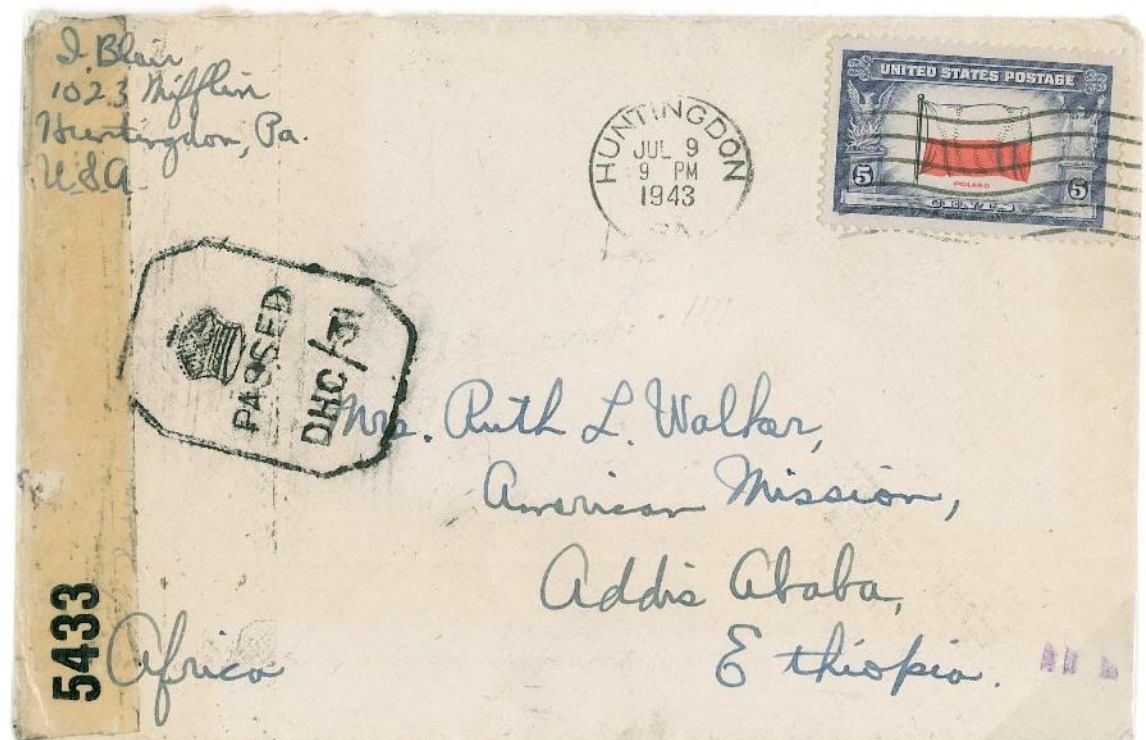 I. Blair
1023 Mifflin
Huntingdon, Pa.
USA
HUNTINGDON
JUL 9
9 PM
1943
PA.
UNITED STATES POSTAGE
POLAND
5 5
CENTS
PASSED
DHC/31
Mrs. Ruth L. Walker,
American Mission,
Addis Ababa,
Ethiopia.
Africa
5433